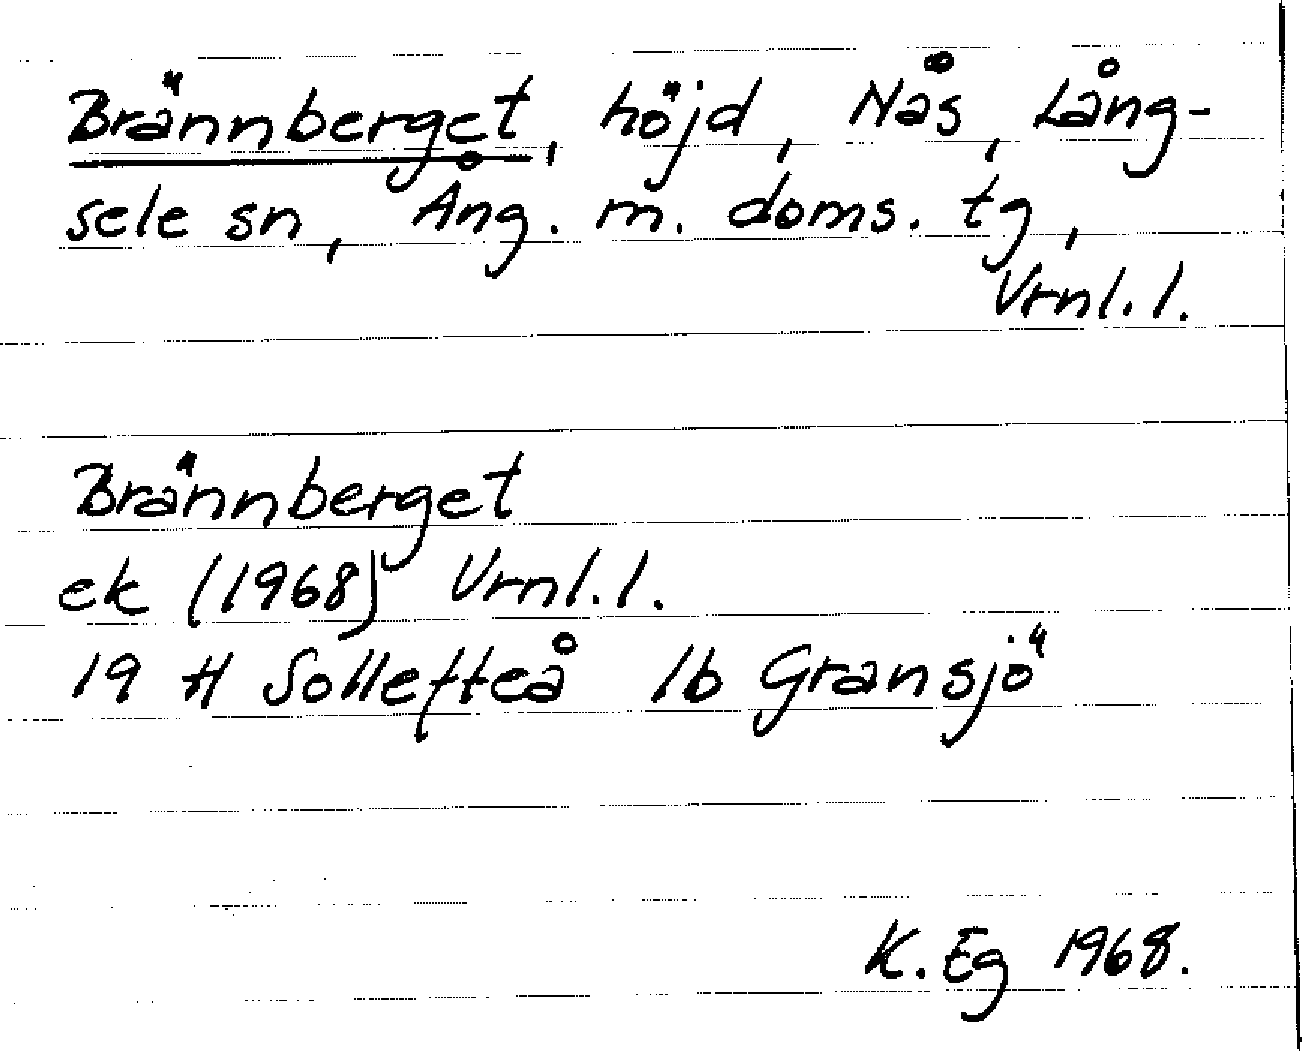 Brännberget, höjd, Nås, Lång-
sele sn, Ång. m. doms. tg,
Vrnl. l.
Brännberget
ek (1968) Vrnl. l.
19 H Sollefteå 1b Gransjö
K. Eg 1968.